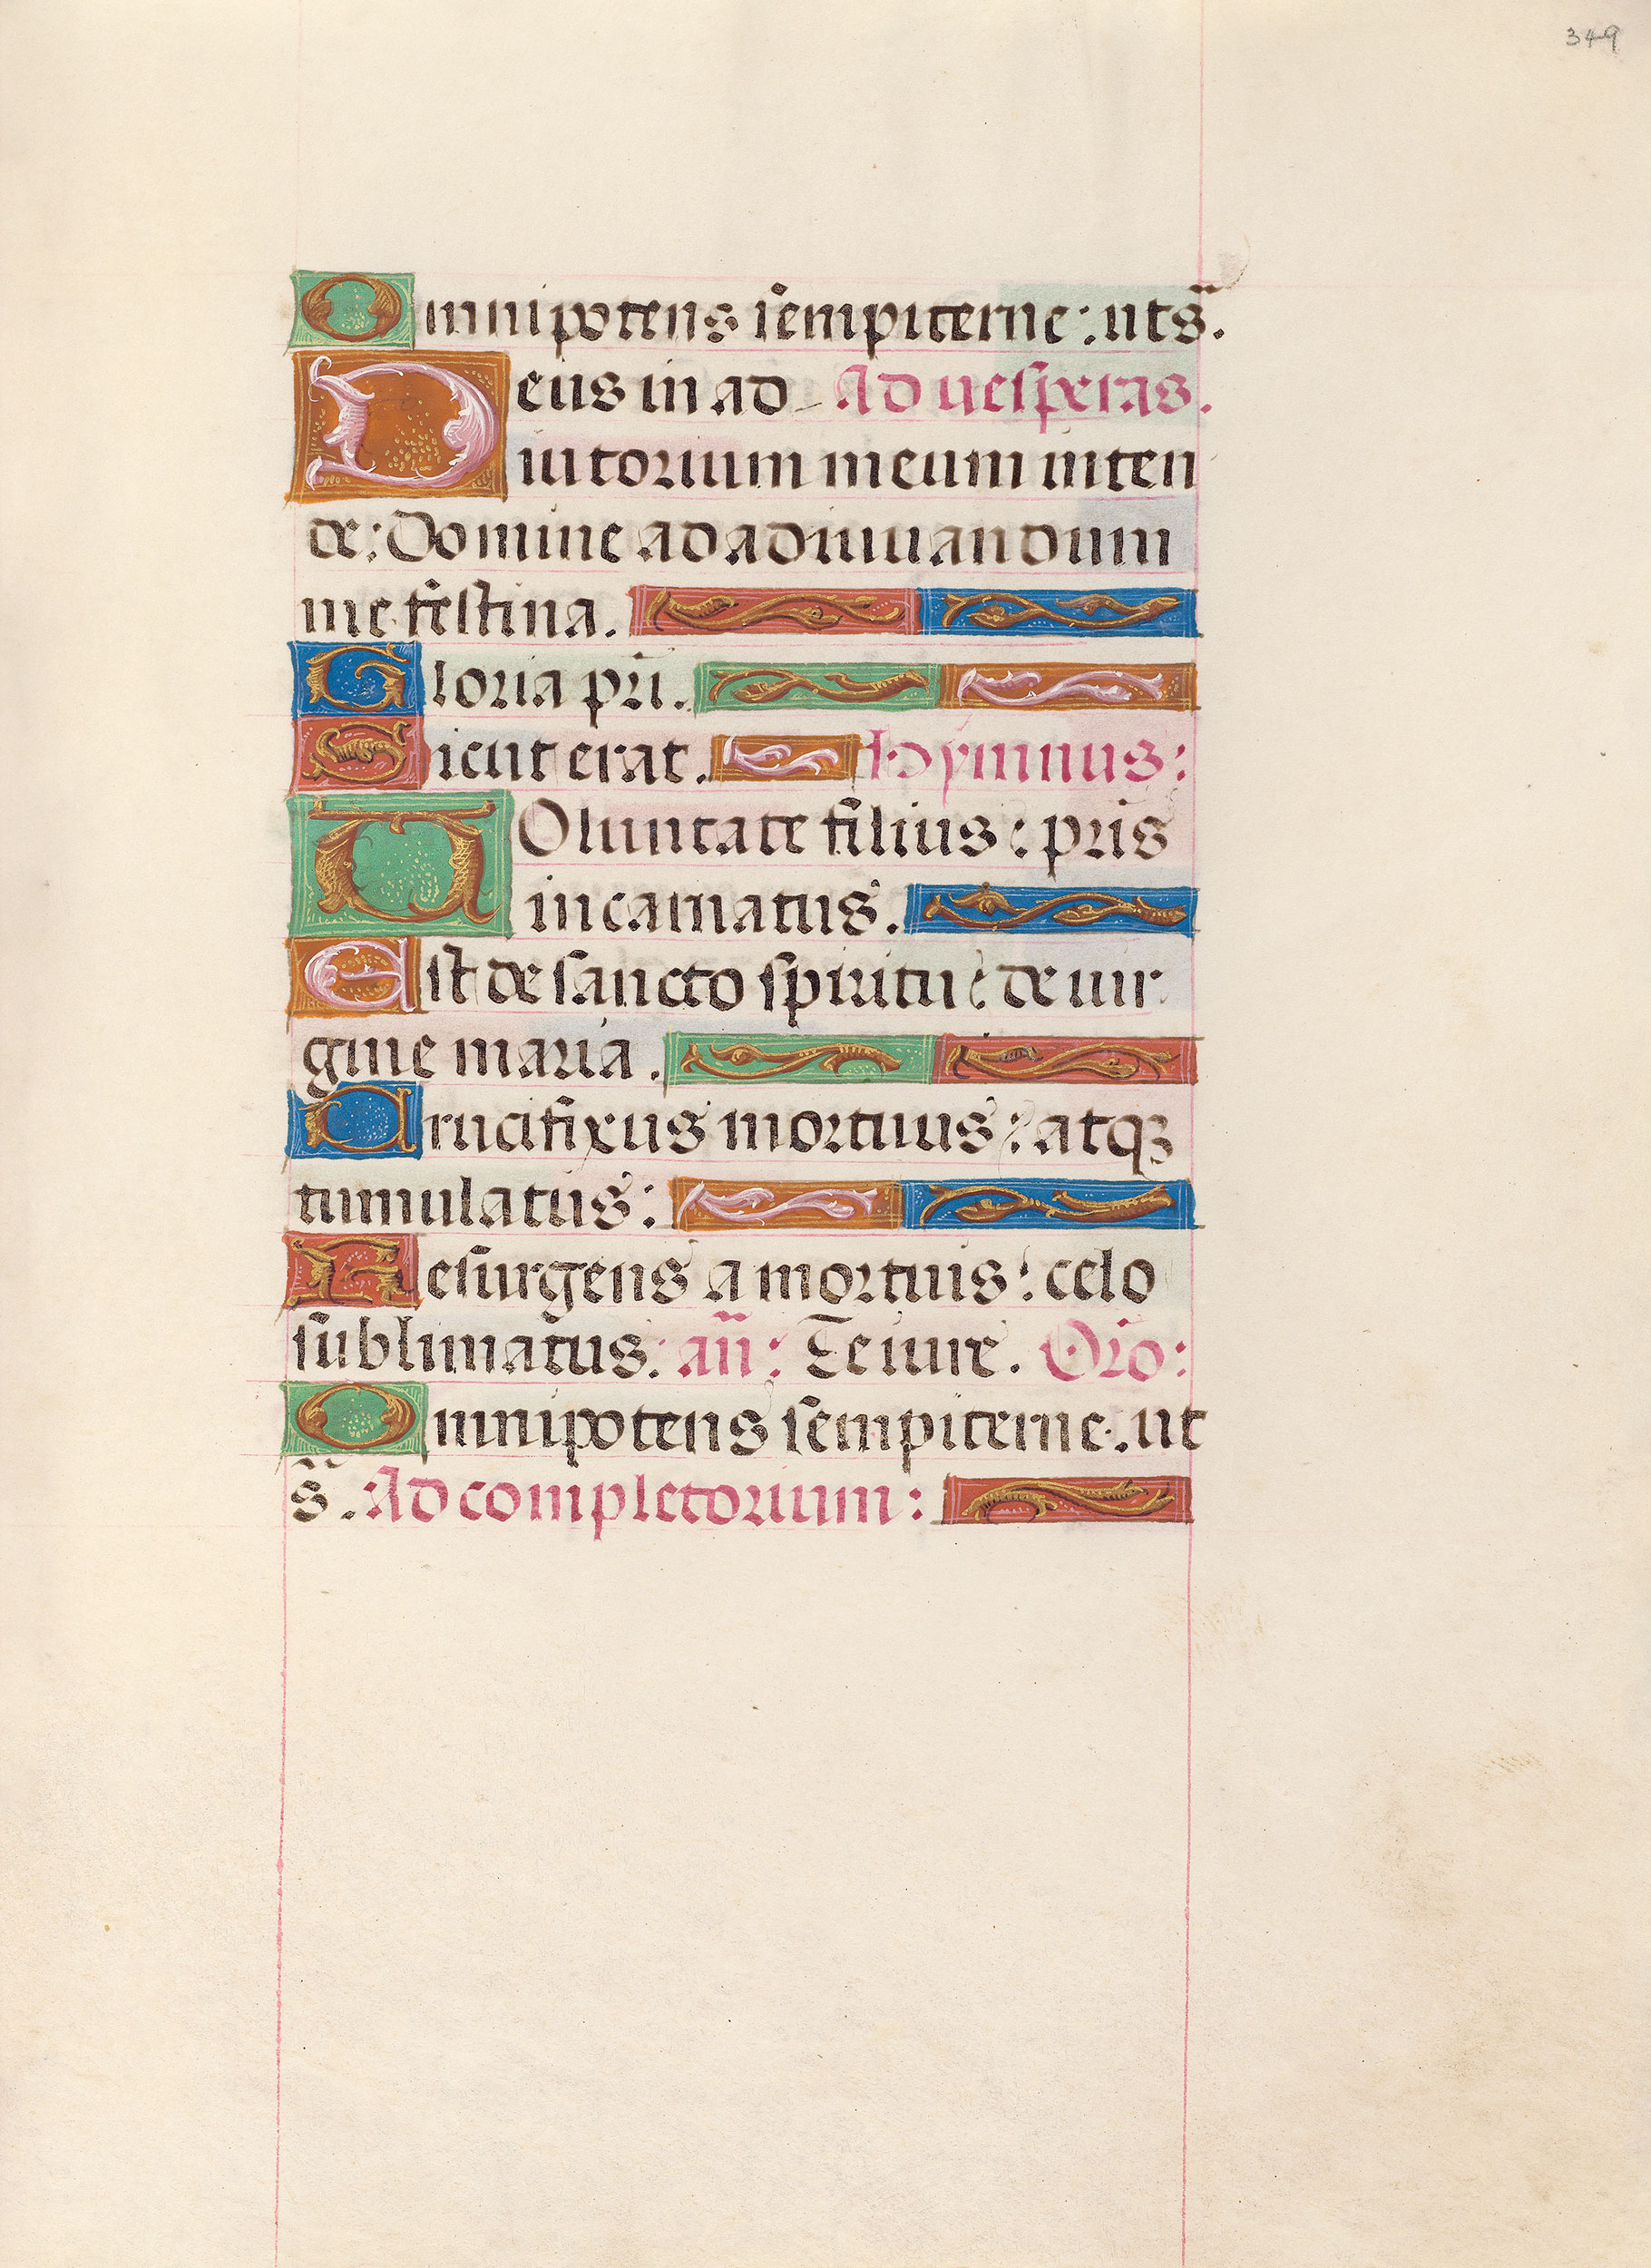 349
Omnipotens sempiterne: ut s̄.
Deus in ad Ad uesperas.
iutorium meum inten
de: Domine ad adiuuandum
me festina.
Gloria pri.
Sicut erat. Hymnus:
VOluntate filius: pris
incarnatus.
Est de sancto spiritu: de uir
gine maria.
Crucifixus mortuus: atqꝫ
tumulatus:
Resurgens a mortuis: celo
sublimatus: an̄: Te iure. Oro:
Omnipotens sempiterne. ut
s̄. Ad completorium: